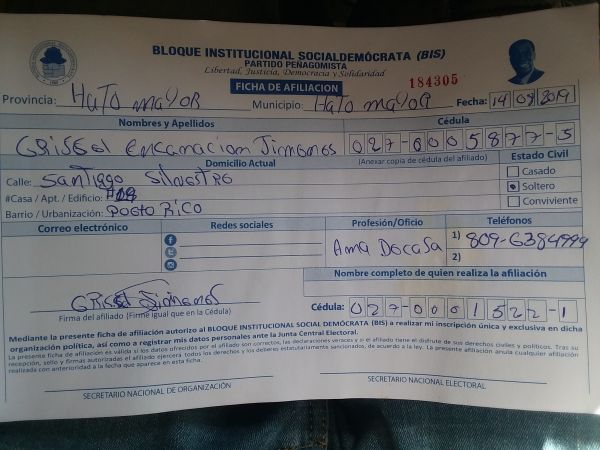 BLOQUE INSTITUCIONAL SOCIALDEMÓCRATA (BIS)
PARTIDO PEÑAGOMISTA
Libertad, Justicia, Democracia y Solidaridad
184305
FICHA DE AFILIACION
Provincia: Hato mayor Municipio: Hato mayor Fecha: 14 09 2019
Nombres y Apellidos Cédula
Grisel encanacion Jimenes 027-0005877-5
Domicilio Actual (Anexar copia de cédula del afiliado) Estado Civil
Calle: Santiago Silvestre Casado
#Casa / Apt. / Edificio: Soltero
Barrio / Urbanización: Poeto Rico Conviviente
Correo electrónico Redes sociales Profesión/Oficio Teléfonos
Ama Docasa 1) 809-6384994
2)
Nombre completo de quien realiza la afiliación
Grisel Jimenes
Firma del afiliado (Firme igual que en la Cédula) Cédula: 027-0001522-1
Mediante la presente ficha de afiliación autorizo al BLOQUE INSTITUCIONAL SOCIAL DEMÓCRATA (BIS) a realizar mi inscripción única y exclusiva en dicha
organización política, así como a registrar mis datos personales ante la Junta Central Electoral.
La presente ficha de afiliación es válida si los datos ofrecidos por el afiliado son correctos, las declaraciones veraces y si el afiliado tiene el disfrute de sus derechos civiles y políticos. Tras su
recepción, sello y firmas autorizadas el afiliado ejercerá todos los derechos y los deberes estatutariamente sancionados, de acuerdo a la ley. La presente afiliación anula cualquier afiliación
realizada con anterioridad a la fecha que aparece en esta ficha.
SECRETARIO NACIONAL DE ORGANIZACIÓN SECRETARIO NACIONAL ELECTORAL